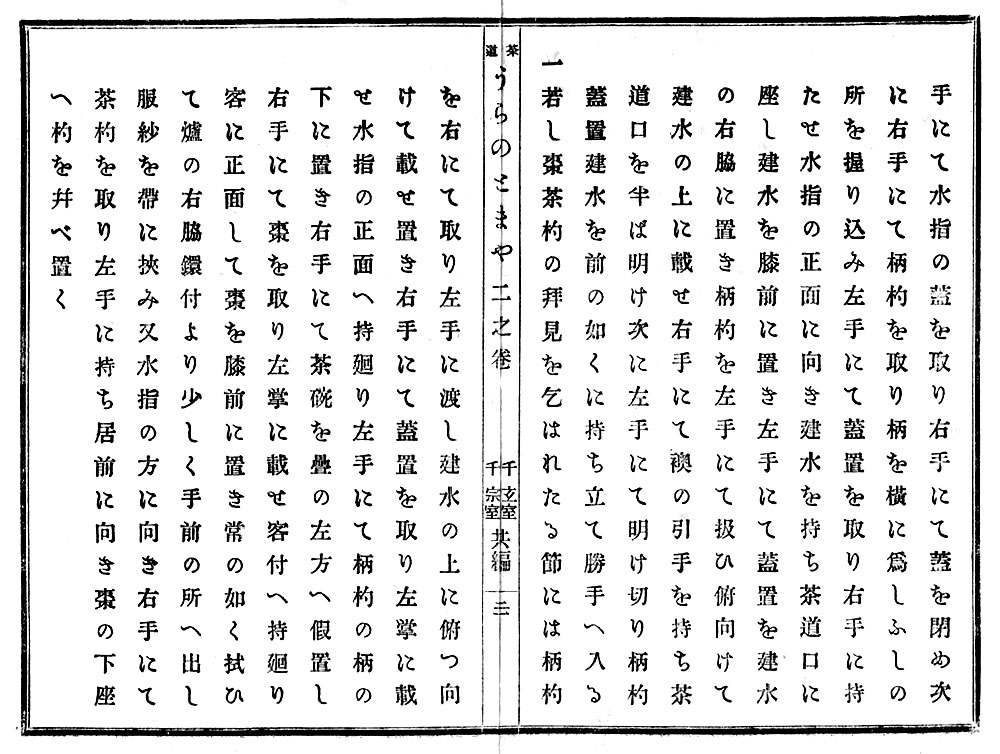 手にて水指の蓋を取り右手にて蓋を閉め次
に右手にて柄杓を取り柄を横に爲しふしの
所を握り込み左手にて蓋置を取り右手に持
たせ水指の正面に向き建水を持ち茶道口に
座し建水を膝前に置き左手にて蓋置を建水
の右脇に置き柄杓を左手にて扱ひ俯向けて
建水の上に載せ右手にて襖の引手を持ち茶
道口を半ば明け次に左手にて明け切り柄杓
蓋置建水を前の如くに持ち立て勝手へ入る
一若し棗茶杓の拜見を乞はれたる節には柄杓
茶道うらのとまや二之卷
千玄室
千宗室
共編
二
を右にて取り左手に渡し建水の上に俯つ向
けて載せ置き右手にて蓋置を取り左掌に載
せ水指の正面へ持廻り左手にて柄杓の柄の
下に置き右手にて茶碗を疊の左方へ假置し
右手にて棗を取り左掌に載せ客付へ持廻り
客に正面して棗を膝前に置き常の如く拭ひ
て爐の右脇鐶付より少しく手前の所へ出し
服紗を帶に挾み又水指の方に向き右手にて
茶杓を取り左手に持ち居前に向き棗の下座
へ杓を幷べ置く